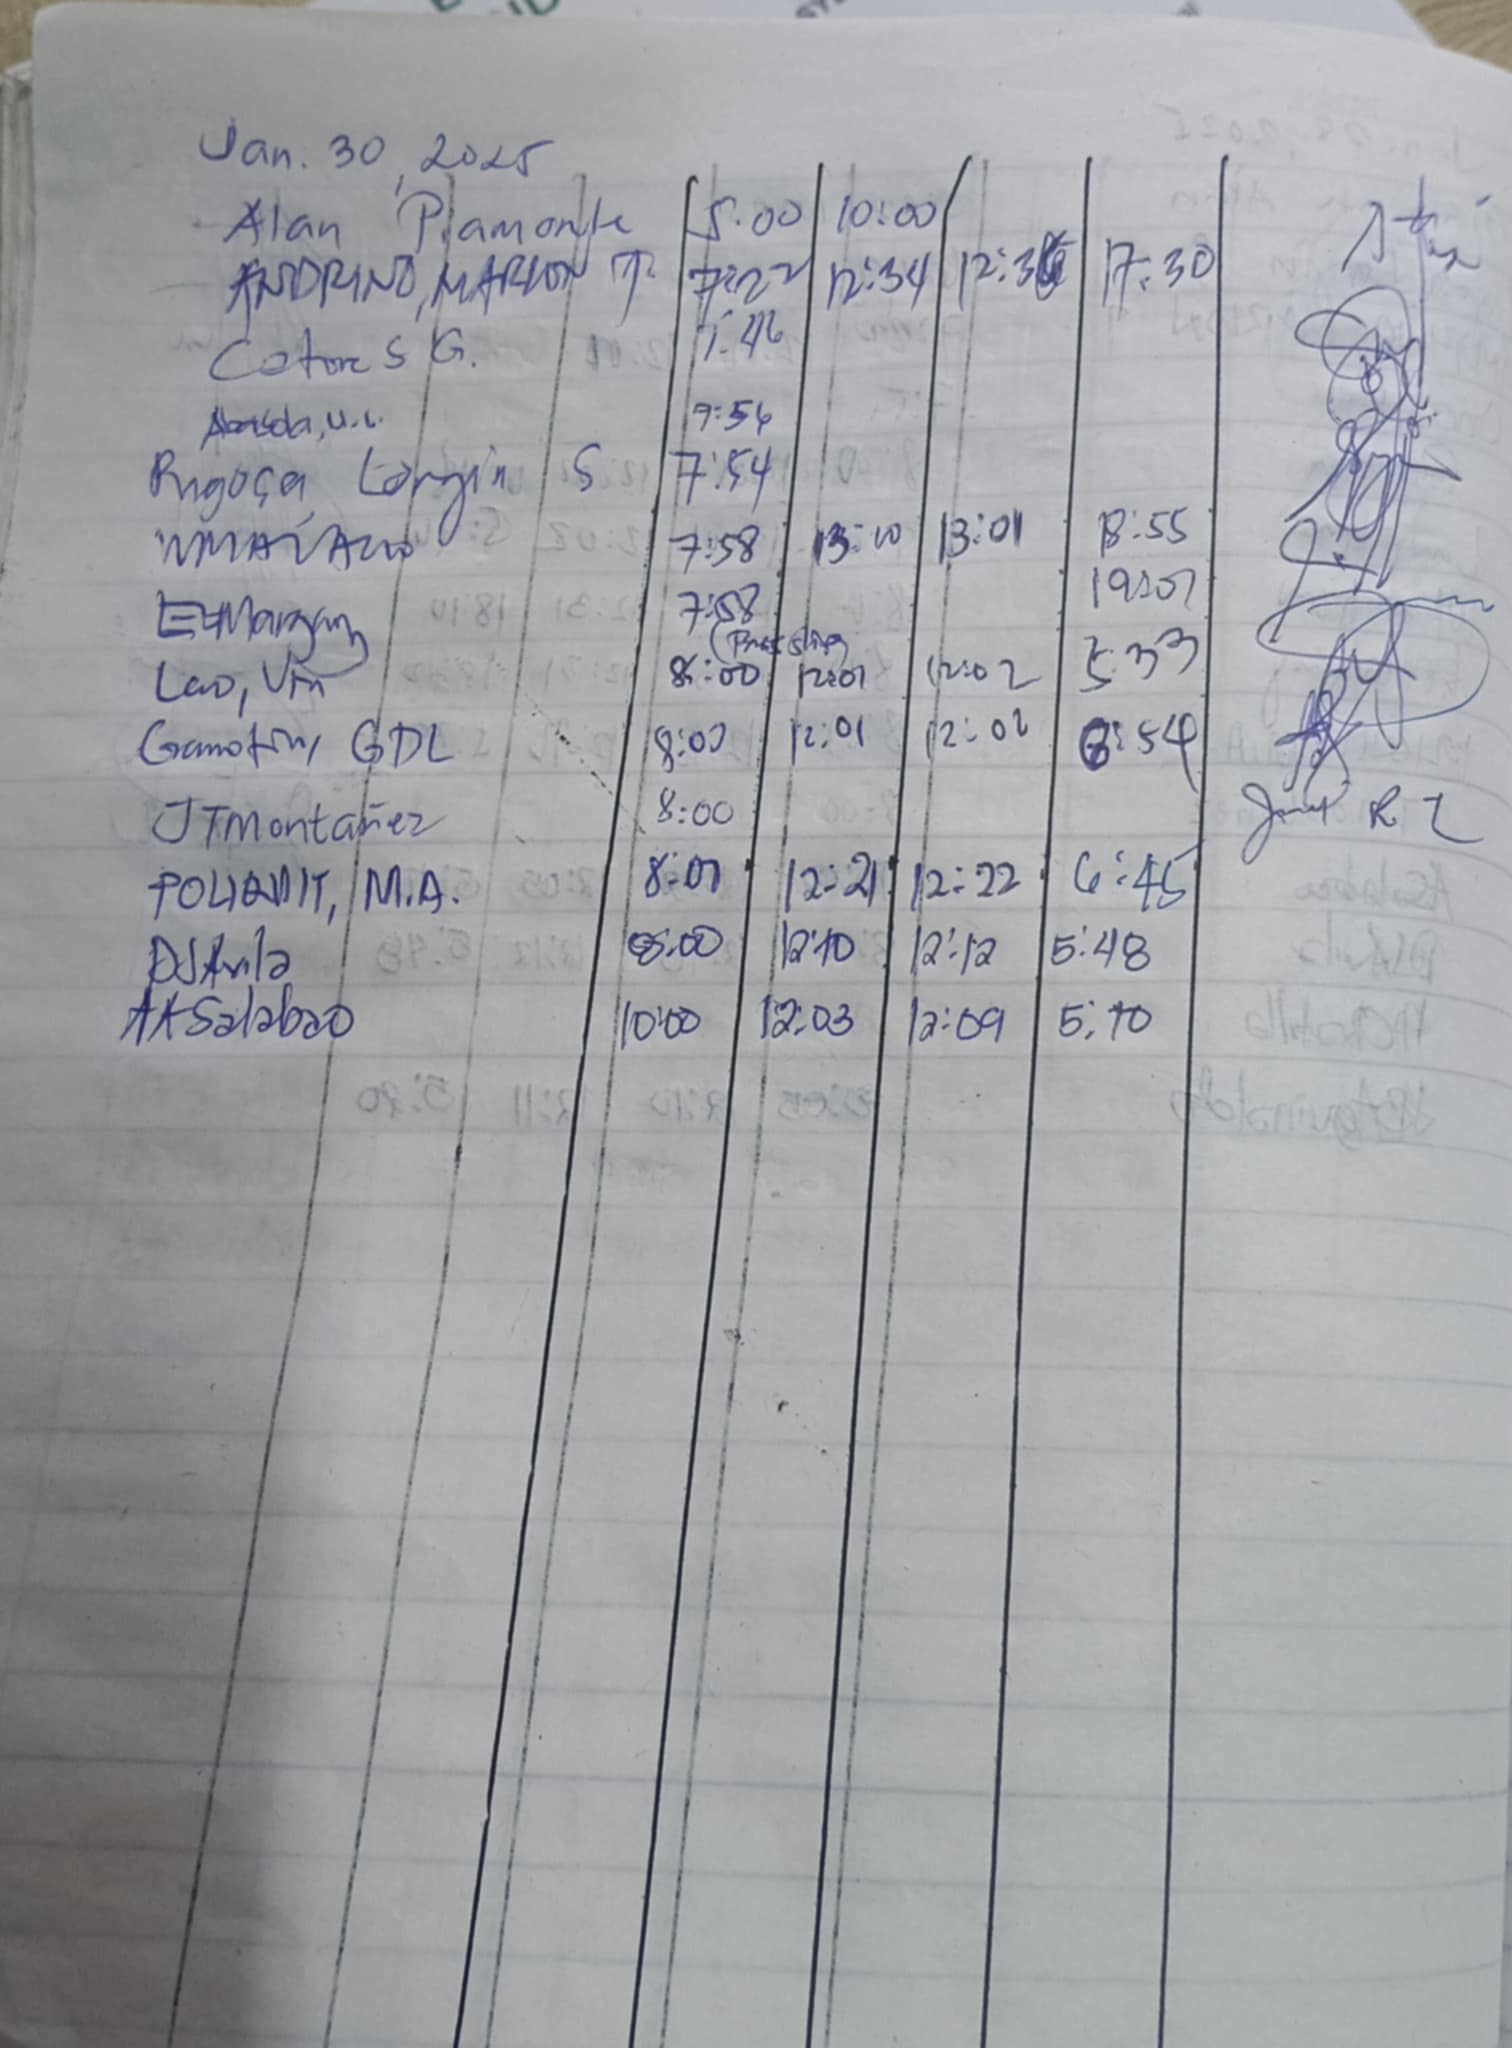 Jan. 30, 2025
Alan Piamonte 5:00 10:00
ANDRINO, MARLON T. 7:22 12:34 12:36 17:30
Catore S G. 7:46
7:56
Rugoça Longin S 7:54
7:58 13:00 13:01 18:55
EcMargan 7:58 19:07
Lao, Vin 8:00 12:01 12:02 5:33
Gamotin, GDL 8:00 12:01 12:02 6:54
JTMontañez 8:00
POLIQUIT, M.A. 8:00 12:21 12:22 6:45
DJAvila 8:00 12:10 12:12 5:48
AKSalabao 10:00 12:03 12:09 5:10